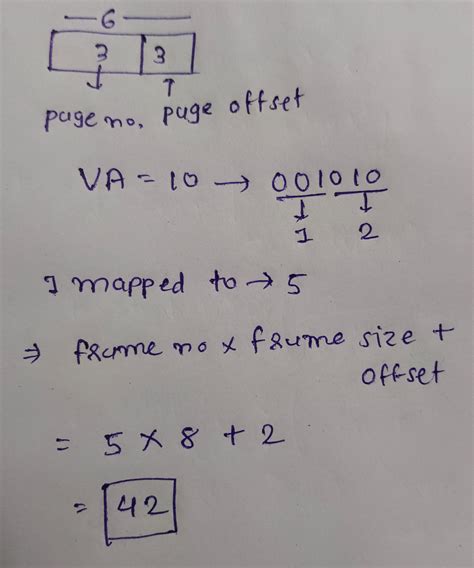 6
3 3
page no, page offset
VA = 10 → 001010
1 2
1 mapped to → 5
⇒ frame no x frame size +
offset
= 5 x 8 + 2
= 42